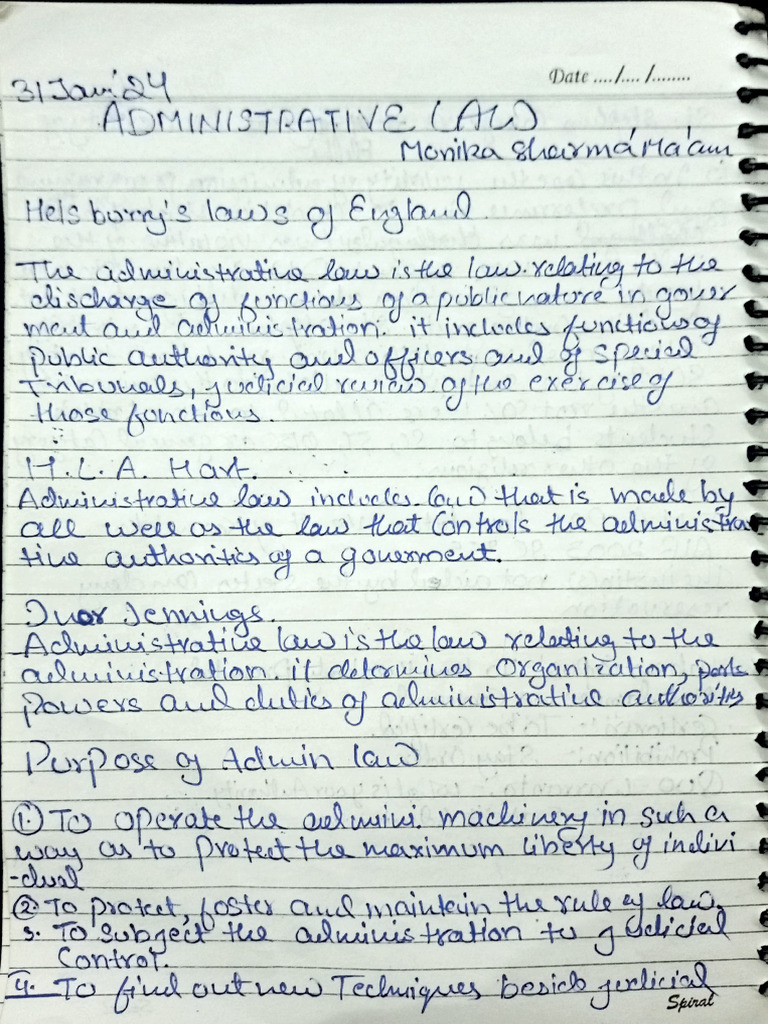 Date ..../..../........
31 Jan'24
ADMINISTRATIVE LAW
Monika Sharma Ma'am
Helsburry's laws of England.
The administrative law is the law relating to the
discharge of functions of a public nature in gover
ment and administration. it includes functions of
public authority and officers and of special
Tribunals, judicial review of the exercise of
those functions.
H.L.A. Hart.
Administrative law includes law that is made by
all well as the law that controls the administra
tive authorities of a goverment.
Ivor Jennings.
Administrative law is the law relating to the
administration. it determines Organization,
powers and duties of administrative authorities
Purpose of Admin law
① To operate the admini. machinery in such a
way as to protect the maximum liberty of indivi
-dual
② To protect, foster and maintain the rule of law.
3. To subject the administration to judicial
Control.
4. To find out new Techniques besids judicial
Spiral